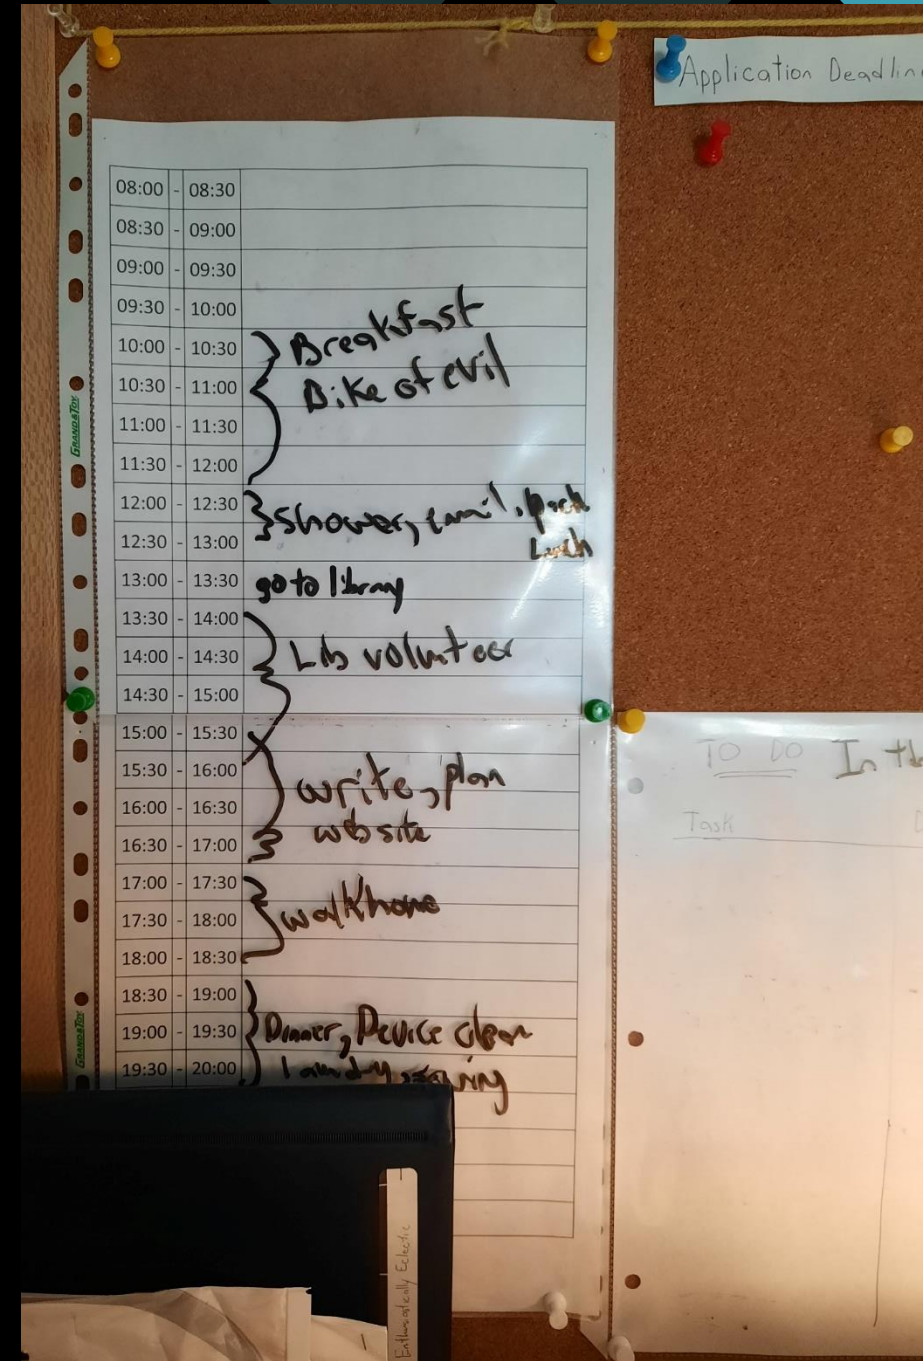 Application Deadlin
08:00 - 08:30
08:30 - 09:00
09:00 - 09:30
09:30 - 10:00
10:00 - 10:30 Breakfast
10:30 - 11:00 Bike of evil
11:00 - 11:30
11:30 - 12:00
12:00 - 12:30 Shower, email, pack
12:30 - 13:00 Lunch
13:00 - 13:30 go to library
13:30 - 14:00
14:00 - 14:30 Lib volunteer
14:30 - 15:00
15:00 - 15:30
15:30 - 16:00 write, plan
16:00 - 16:30 website
16:30 - 17:00
17:00 - 17:30
17:30 - 18:00 walk home
18:00 - 18:30
18:30 - 19:00
19:00 - 19:30 Dinner, Device clean
19:30 - 20:00 laundry, sewing
TO DO In th
Task D
GRAND&TOY
GRAND&TOY
Enthusiastically Eclectic